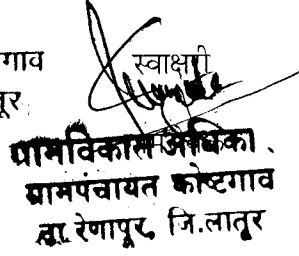 गाव
स्वाक्षरी
तूर
ग्रामविकास अधिका.
ग्रामपंचायत कोष्टगाव
ता. रेणापूर, जि.लातूर